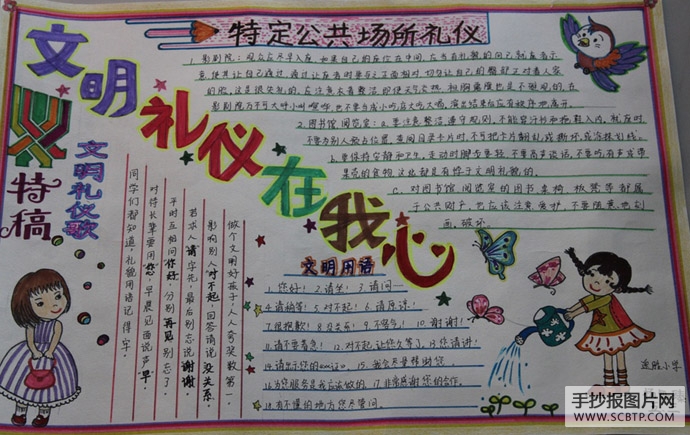 特定公共场所礼仪
文明礼仪在我心
特稿
文明礼仪歌
1. 影剧院：观众应尽早入座。如果自己的座位在中间，应当有礼貌的向已就座者示
意，使其让自己通过。通过让座者时要与之正面相对，切勿让自己的臀部正对着人家
的脸，这是很失礼的。应注意衣着整洁，即使天气炎热，袒胸露腹也是不雅观的。在
影剧院万不可大呼小叫，
演出结束后应有秩序地离开。
2. 图书馆、阅览室：a. 要注意整洁，遵守规则。不能穿汗衫和拖鞋入内。就座时，
不要为别人预占位置。查阅目录卡片时，不可把卡片翻乱或撕坏，或涂抹线。
b. 要保持安静和卫生。走动时脚步要轻，不要高声谈话，不要吃有声或带
果壳的食物，这些都是有悖于文明礼貌的。
c. 对图书馆、阅览室的图书桌椅、板凳等都属
于公共财产，也应该注意爱护，不要随意刻
画、破坏。
同学们都知道，礼貌用语记得牢。
对待长辈要用“您”，早晨见面说声早。
平时互相问“你好”，分别再见别忘了。
若求人，请字先，最后别忘说谢谢。
影响别人“对不起”，回答请说没关系。
做个文明好孩子，人人夸奖数第一。
文明用语
1. 您好！ 2. 请坐！ 3. 请问…
4. 请稍等！ 5. 对不起！ 6. 请原谅！
7. 很抱歉！ 8. 没关系！ 9. 不客气！ 10. 谢谢！
11. 请不要着急！ 12. 对不起，让您久等了。 13. 您请讲！
14. 请出示您的 15. 我会尽量帮助您
16. 为您服务是我应该做的。 17. 非常感谢您的合作。
18. 有不懂的地方您尽管问。
逸胜小学
手抄报图片网
WWW.SCBTP.COM